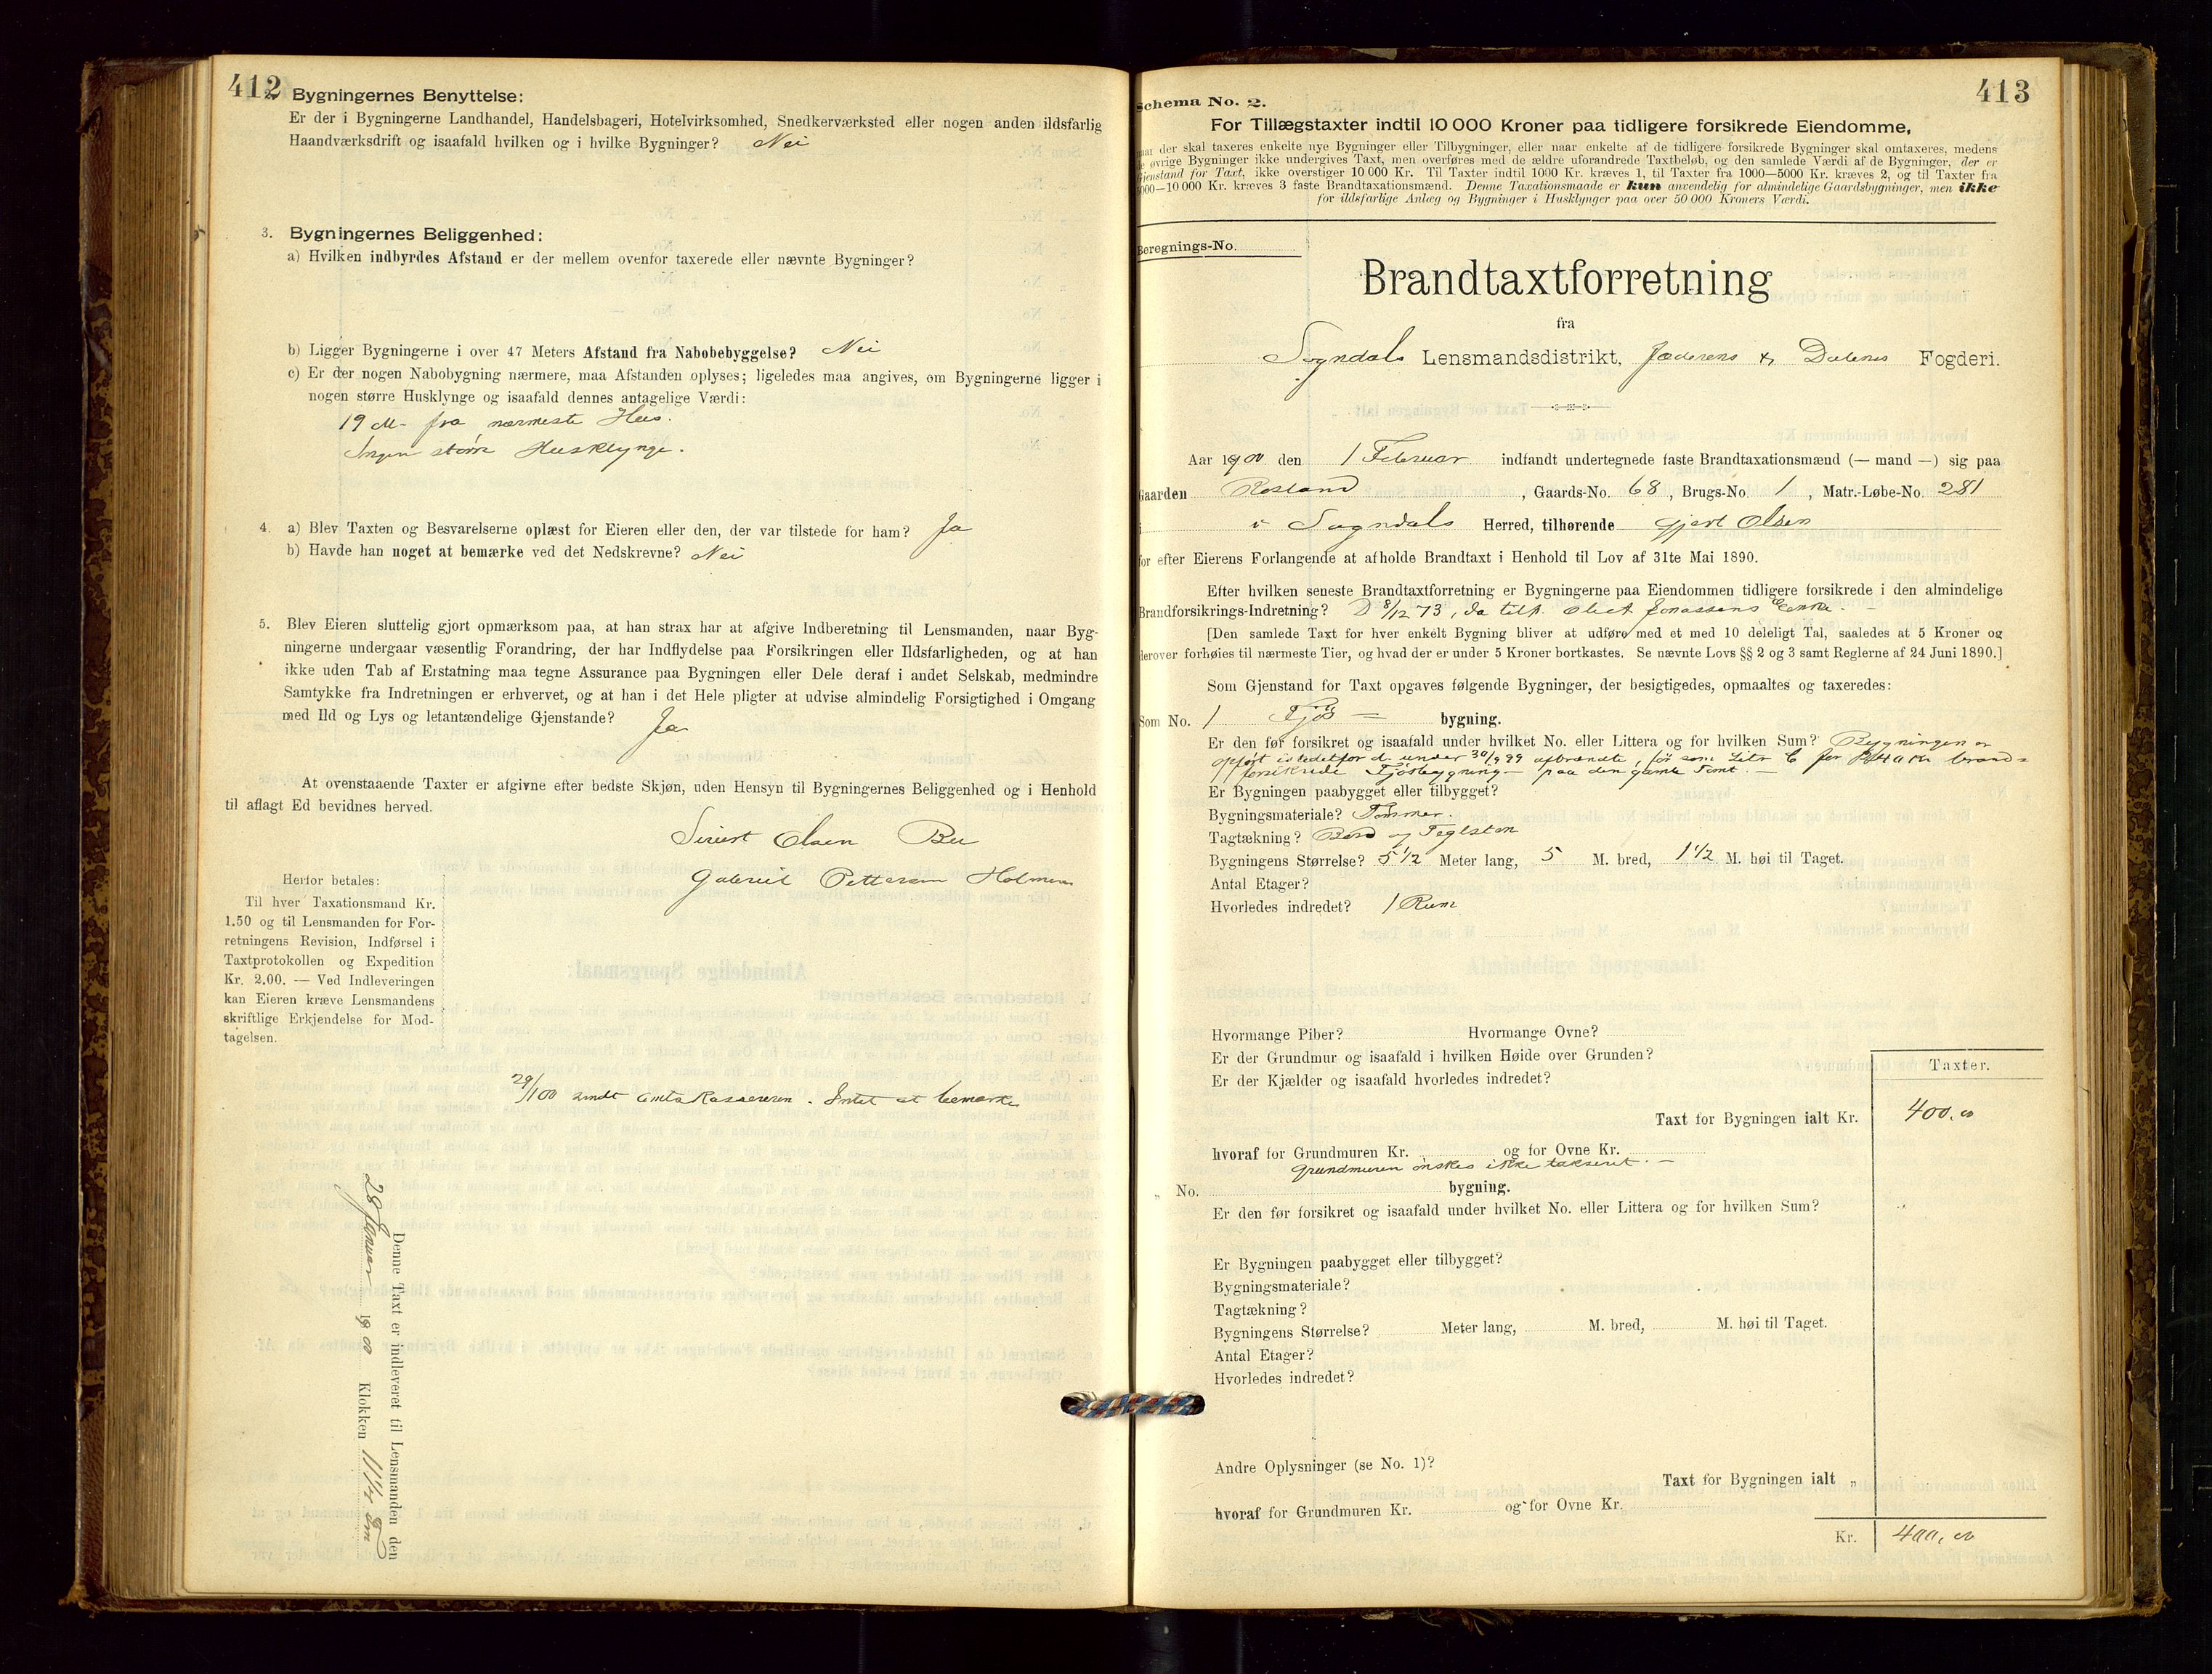 412
2. Bygningernes Benyttelse:
Er der i Bygningerne Landhandel, Handelsbageri, Hotelvirksomhed, Snedkerværksted eller nogen anden ildsfarlig
Haandværksdrift og isaafald hvilken og i hvilke Bygninger? Nei
3. Bygningernes Beliggenhed:
a) Hvilken indbyrdes Afstand er der mellem ovenfor taxerede eller nævnte Bygninger?
b) Ligger Bygningerne i over 47 Meters Afstand fra Nabobebyggelse? Nei
c) Er der nogen Nabobygning nærmere, maa Afstanden oplyses; ligeledes maa angives, om Bygningerne ligger i
nogen større Husklynge og isaafald dennes antagelige Værdi:
19 M. fra nærmeste Hus.
Ingen større Husklynge.
4. a) Blev Taxten og Besvarelserne oplæst for Eieren eller den, der var tilstede for ham? Ja
b) Havde han noget at bemærke ved det Nedskrevne? Nei
5. Blev Eieren sluttelig gjort opmærksom paa, at han strax har at afgive Indberetning til Lensmanden, naar Byg-
ningerne undergaar væsentlig Forandring, der har Indflydelse paa Forsikringen eller Ildsfarligheden, og at han
ikke uden Tab af Erstatning maa tegne Assurance paa Bygningen eller Dele deraf i andet Selskab, medmindre
Samtykke fra Indretningen er erhvervet, og at han i det Hele pligter at udvise almindelig Forsigtighed i Omgang
med Ild og Lys og letantændelige Gjenstande? Ja
At ovenstaaende Taxter er afgivne efter bedste Skjøn, uden Hensyn til Bygningernes Beliggenhed og i Henhold
til aflagt Ed bevidnes herved.
Sivert Olsen Bu
Gabriel Pettersen Holmen
Herfor betales:
Til hver Taxationsmand Kr.
1.50 og til Lensmanden for For-
retningens Revision, Indførsel i
Taxtprotokollen og Expedition
Kr. 2.00. — Ved Indleveringen
kan Eieren kræve Lensmandens
skriftlige Erkjendelse for Mod-
tagelsen.
29/1 00 sendt Amtskassereren. Intet at bemærke
Denne Taxt er indleveret til Lensmanden den
28 Januar 1900 Klokken 11 1/2 Fm
413
Schema No. 2.
For Tillægstaxter indtil 10 000 Kroner paa tidligere forsikrede Eiendomme,
naar der skal taxeres enkelte nye Bygninger eller Tilbygninger, eller naar enkelte af de tidligere forsikrede Bygninger skal omtaxeres, medens
de øvrige Bygninger ikke undergives Taxt, men overføres med de ældre uforandrede Taxtbeløb, og den samlede Værdi af de Bygninger, der er
Gjenstand for Taxt, ikke overstiger 10 000 Kr. Til Taxter indtil 1000 Kr. kræves 1, til Taxter fra 1000—5000 Kr. kræves 2, og til Taxter fra
5000—10 000 Kr. kræves 3 faste Brandtaxationsmænd. Denne Taxationsmaade er kun anvendelig for almindelige Gaardsbygninger, men ikke
for ildsfarlige Anlæg og Bygninger i Husklynger paa over 50 000 Kroners Værdi.
Beregnings-No.
Brandtaxtforretning
fra
Sogndals Lensmandsdistrikt, Jæderens & Dalenes Fogderi.
Aar 1900 den 1 Februar indfandt undertegnede faste Brandtaxationsmænd (— mand —) sig paa
Gaarden Rosland, Gaards-No. 68, Brugs-No. 1, Matr.-Løbe-No. 281
i Sogndals Herred, tilhørende Gjert Olsen
for efter Eierens Forlangende at afholde Brandtaxt i Henhold til Lov af 31te Mai 1890.
Efter hvilken seneste Brandtaxtforretning er Bygningerne paa Eiendommen tidligere forsikrede i den almindelige
Brandforsikrings-Indretning? D 8/12 73, da tilh. Jonassens Enke.
[Den samlede Taxt for hver enkelt Bygning bliver at udføre med et med 10 deleligt Tal, saaledes at 5 Kroner og
derover forhøies til nærmeste Tier, og hvad der er under 5 Kroner bortkastes. Se nævnte Lovs §§ 2 og 3 samt Reglerne af 24 Juni 1890.]
Som Gjenstand for Taxt opgaves følgende Bygninger, der besigtigedes, opmaaltes og taxeredes:
Som No. 1 Fjøs= bygning.
Er den før forsikret og isaafald under hvilket No. eller Littera og for hvilken Sum? Bygningen er
opført istedetfor d. under 30/9 99 afbrændte, før som Litr C for Kr brand=
forsikrede Fjøsbygning — paa den gamle Tomt. —
Er Bygningen paabygget eller tilbygget?
Bygningsmateriale? Tømmer.
Tagtækning? Bord og Teglsten
Bygningens Størrelse? 5 1/2 Meter lang, 5 M. bred, 1 1/2 M. høi til Taget.
Antal Etager?
Hvorledes indredet? 1 Rum
Hvormange Piber? Hvormange Ovne?
Er der Grundmur og isaafald i hvilken Høide over Grunden?
Er der Kjælder og isaafald hvorledes indredet?
Taxter.
Taxt for Bygningen ialt Kr. 400,00
hvoraf for Grundmuren Kr. og for Ovne Kr.
Grundmuren ønskes ikke takseret. —
„ No. bygning.
Er den før forsikret og isaafald under hvilket No. eller Littera og for hvilken Sum?
Er Bygningen paabygget eller tilbygget?
Bygningsmateriale?
Tagtækning?
Bygningens Størrelse? Meter lang, M. bred, M. høi til Taget.
Antal Etager?
Hvorledes indredet?
Andre Oplysninger (se No. 1)?
Taxt for Bygningen ialt „
hvoraf for Grundmuren Kr. og for Ovne Kr.
Kr. 400,00